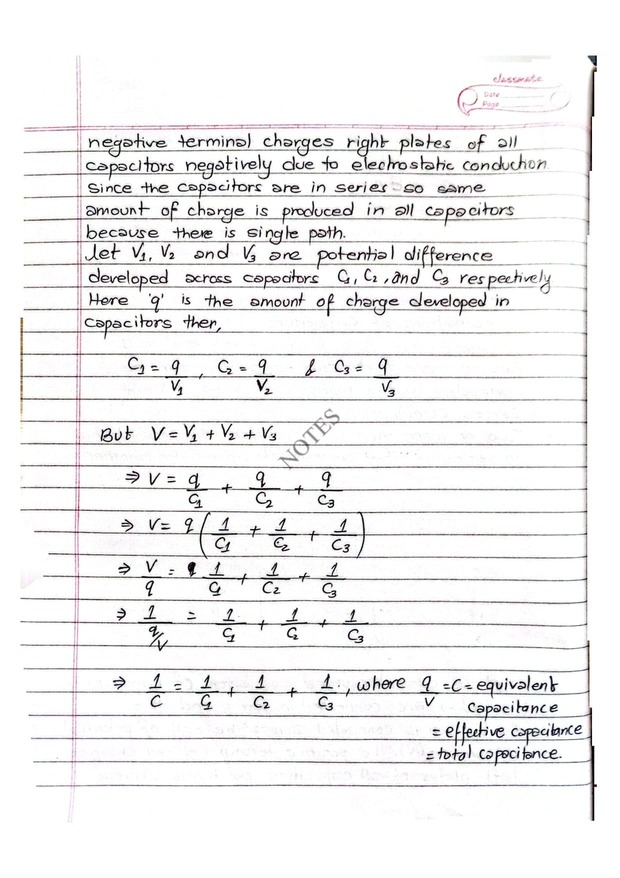 classmate
Date
Page
negative terminal charges right plates of all
capacitors negatively due to electrostatic conduction.
Since the capacitors are in series so same
amount of charge is produced in all capacitors
because there is single path.
Let V₁, V₂ and V₃ are potential difference
developed across capacitors C₁, C₂, and C₃ respectively
Here 'q' is the amount of charge developed in
capacitors then,
C₁ = q/V₁ , C₂ = q/V₂ & C₃ = q/V₃
But V = V₁ + V₂ + V₃
⇒ V = q/C₁ + q/C₂ + q/C₃
⇒ V = q (1/C₁ + 1/C₂ + 1/C₃)
⇒ V/q = 1/C₁ + 1/C₂ + 1/C₃
⇒ 1/(q/V) = 1/C₁ + 1/C₂ + 1/C₃
⇒ 1/C = 1/C₁ + 1/C₂ + 1/C₃ , where q/V = C = equivalent
capacitance
= effective capacitance
= total capacitance.
NOTES